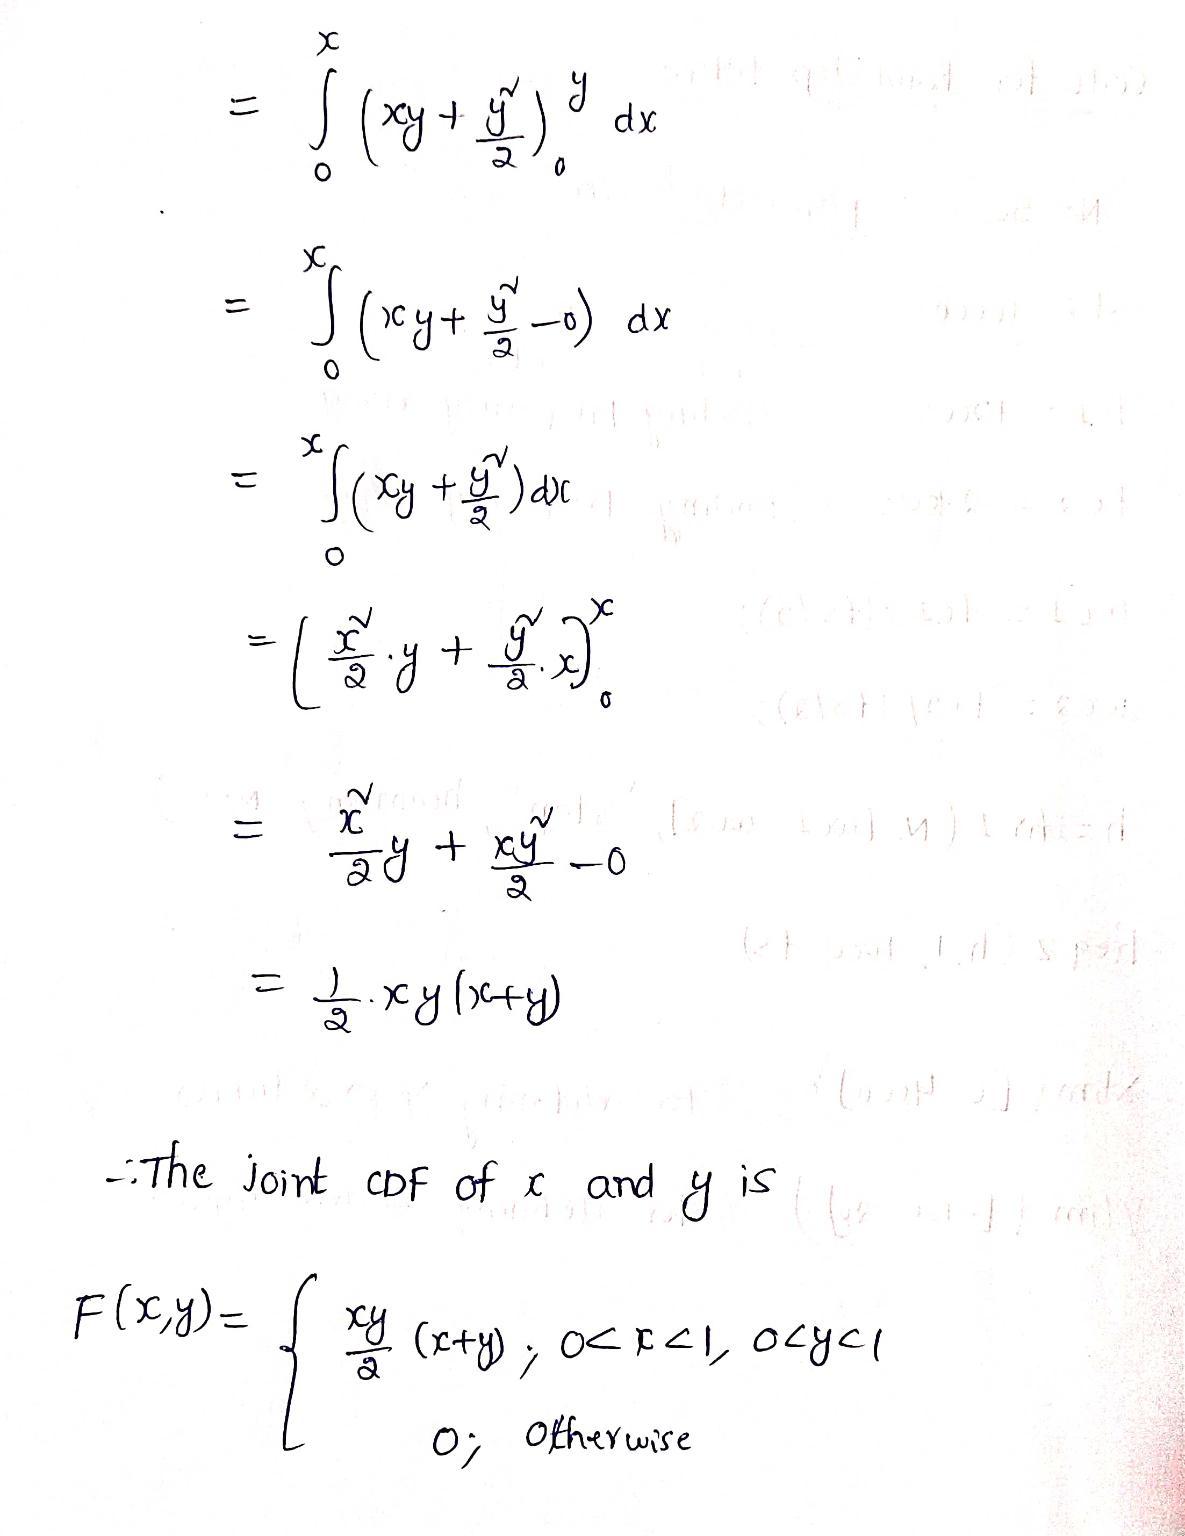 = ∫₀ˣ (xy + y²/2)₀ʸ dx
= ∫₀ˣ (xy + y²/2 - 0) dx
= ∫₀ˣ (xy + y²/2) dx
= [x²/2 · y + y²/2 · x]₀ˣ
= x²/2 y + xy²/2 - 0
= 1/2 · xy(x+y)
∴ The joint CDF of x and y is
F(x,y) = { xy/2 (x+y) ; 0<x<1, 0<y<1
0; otherwise